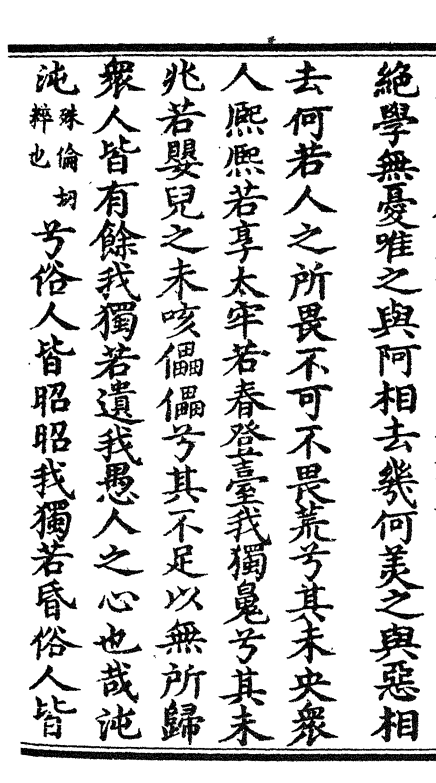 絕學無憂唯之與阿相去幾何美之與惡相
去何若人之所畏不可不畏荒兮其未央衆
人熈熈若享太牢若春登臺我獨兮其未
兆若嬰兒之未咳儡儡兮其不足以無所歸
衆人皆有餘我獨若遺我愚人之心也哉沌
沌殊倫切粹也兮俗人皆昭昭我獨若昏俗人皆